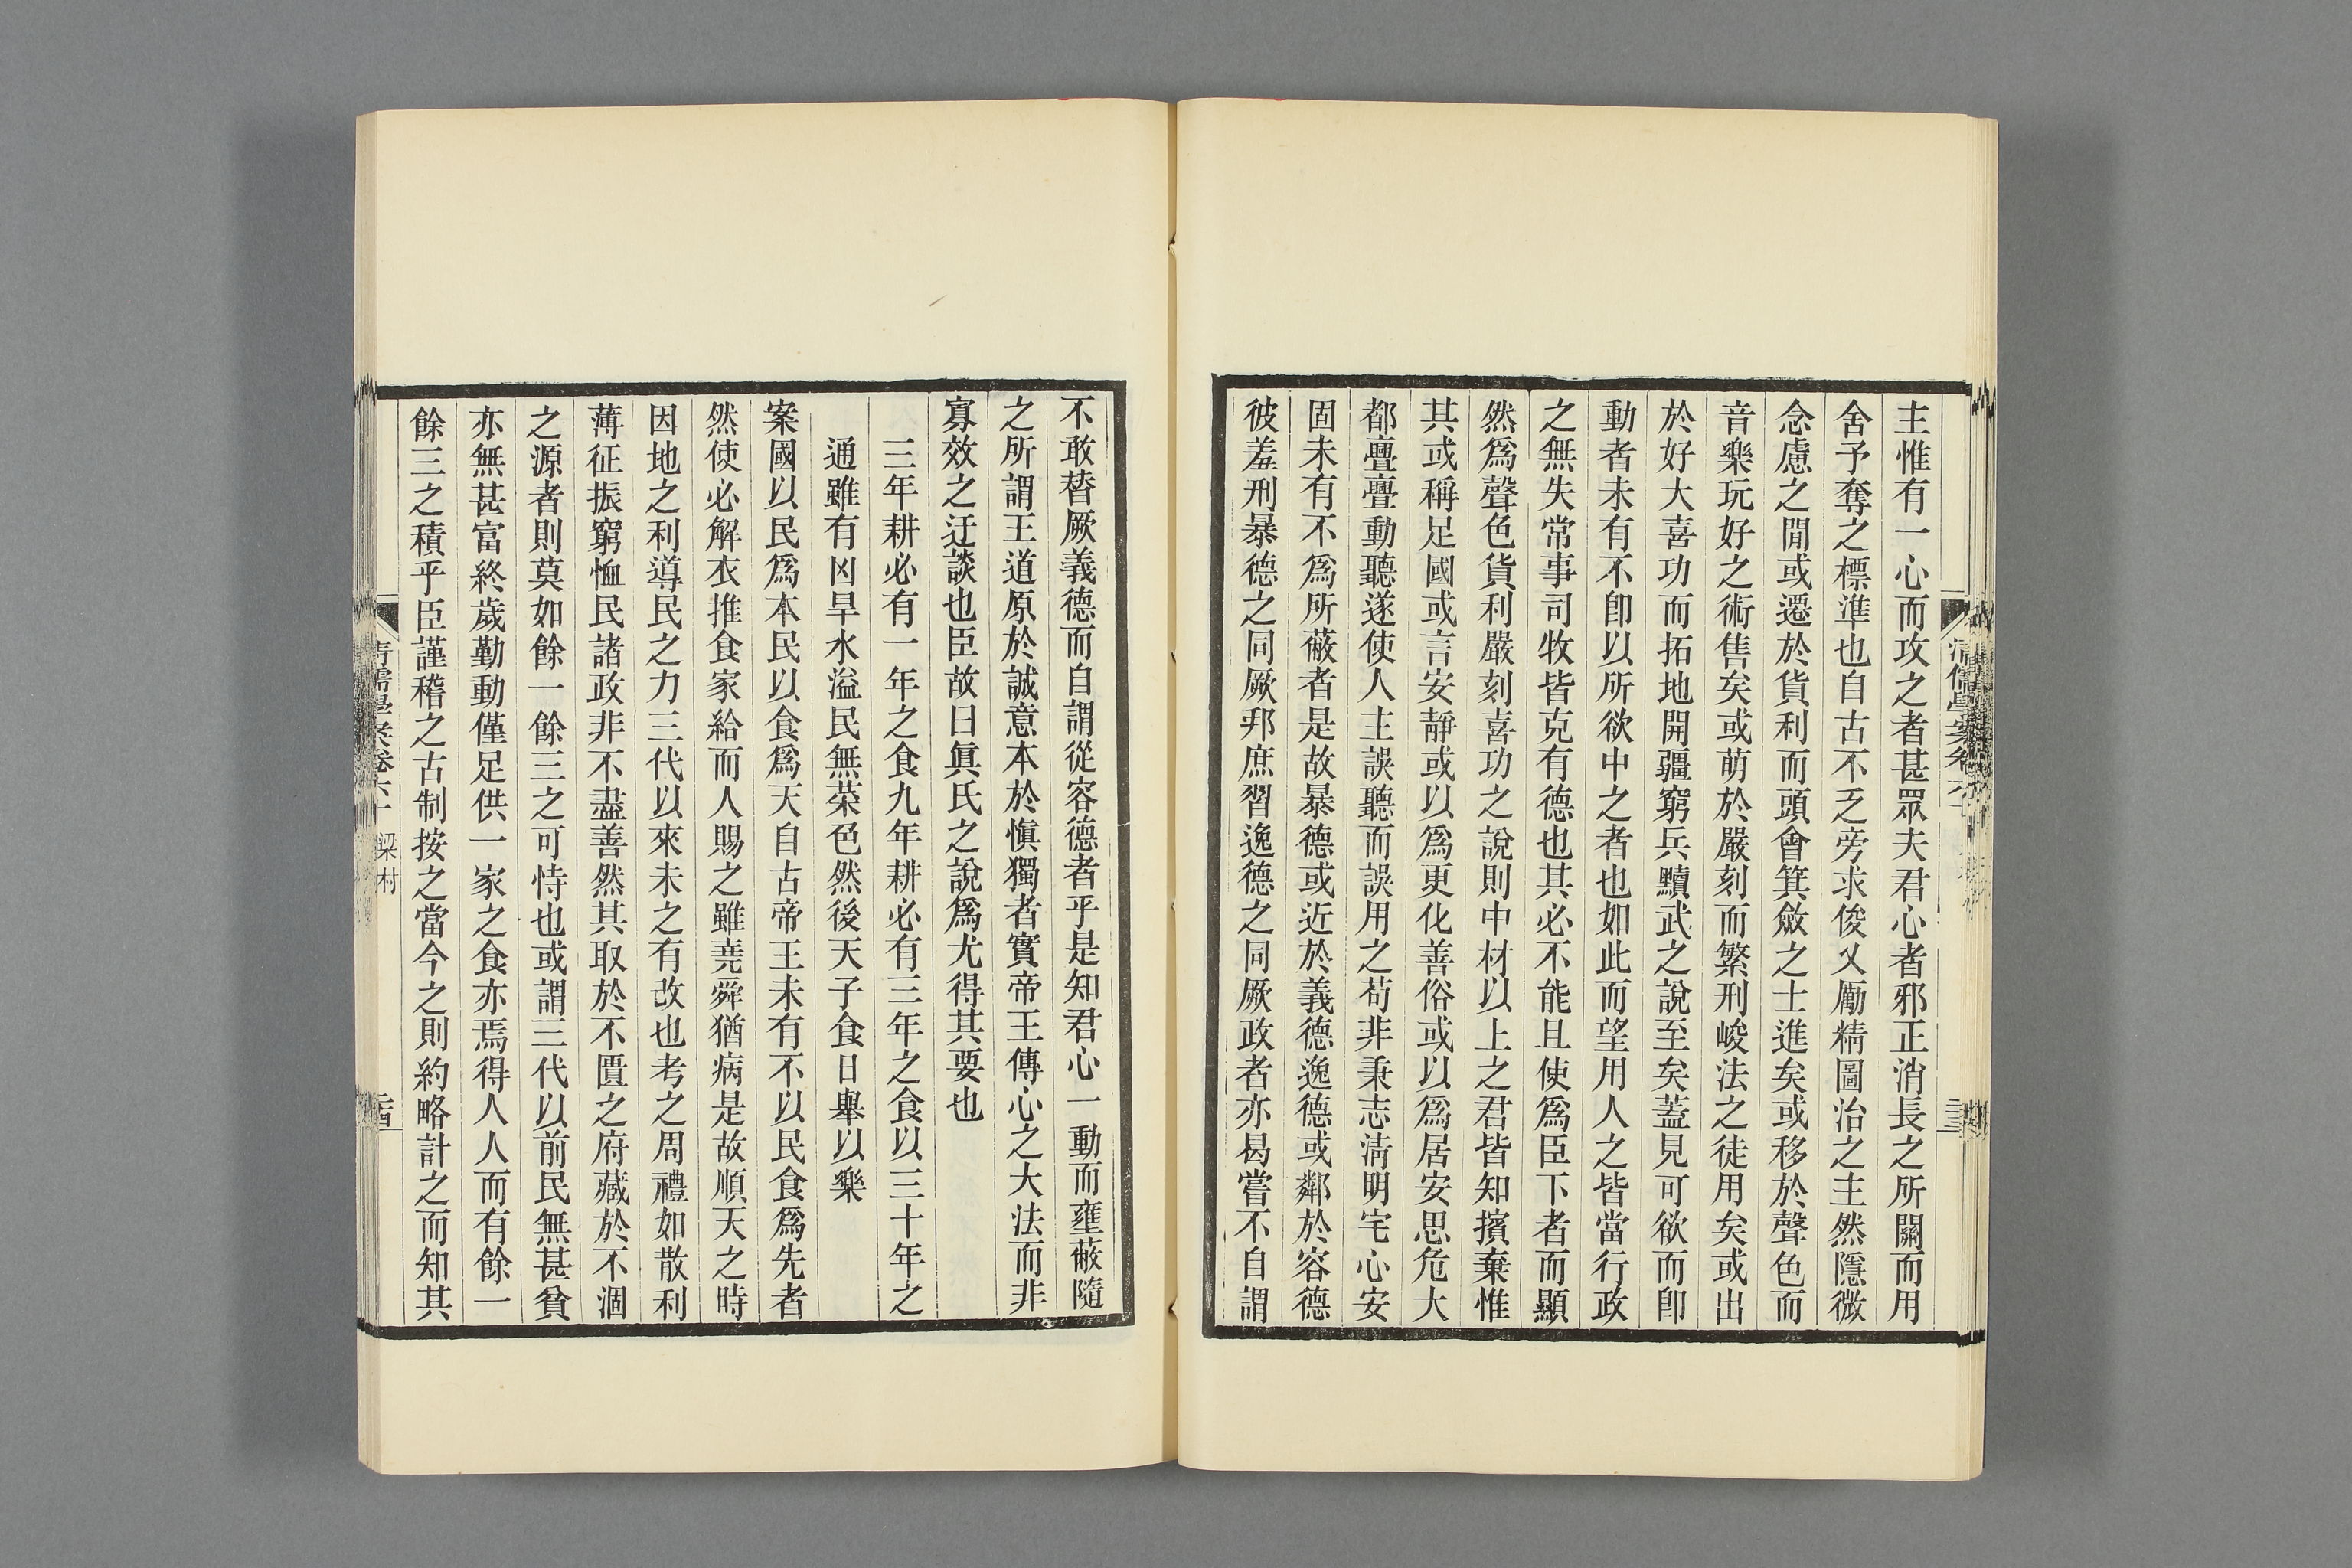 主惟有一心而攻之者甚眾夫君心者邪正消長之所關而用
舍予奪之標準也自古不乏旁求俊乂勵精圖治之主然隱微
念慮之閒或遷於貨利而頭會箕斂之士進矣或移於聲色而
音樂玩好之術售矣或萌於嚴刻而繁刑峻法之徒用矣或出
於好大喜功而拓地開疆窮兵黷武之說至矣蓋見可欲而卽
動者未有不卽以所欲中之者也如此而望用人之皆當行政
之無失常事司牧皆克有德也其必不能且使爲臣下者而顯
然爲聲色貨利嚴刻喜功之說則中材以上之君皆知擯棄惟
其或稱足國或言安靜或以爲更化善俗或以爲居安思危大
都亹亹動聽遂使人主誤聽而誤用之苟非秉志淸明宅心安
固未有不爲所蔽者是故暴德或近於義德逸德或鄰於容德
彼羞刑暴德之同厥邦庶習逸德之同厥政者亦曷嘗不自謂
清儒學案卷六十
不敢替厥義德而自謂從容德者乎是知君心一動而壅蔽隨
之所謂王道原於誠意本於愼獨者實帝王傳心之大法而非
寡效之迂談也臣故曰眞氏之說爲尤得其要也
三年耕必有一年之食九年耕必有三年之食以三十年之
通雖有凶旱水溢民無菜色然後天子食日舉以樂
案國以民爲本民以食爲天自古帝王未有不以民食爲先者
然使必解衣推食家給而人賜之雖堯舜猶病是故順天之時
因地之利導民之力三代以來未之有改也考之周禮如散利
薄征振窮恤民諸政非不盡善然其取於不匱之府藏於不涸
之源者則莫如餘一餘三之可恃也或謂三代以前民無甚貧
亦無甚富終歲勤動僅足供一家之食亦焉得人人而有餘一
餘三之積乎臣謹稽之古制按之當今之則約略計之而知其
清儒學案卷六十 梁村